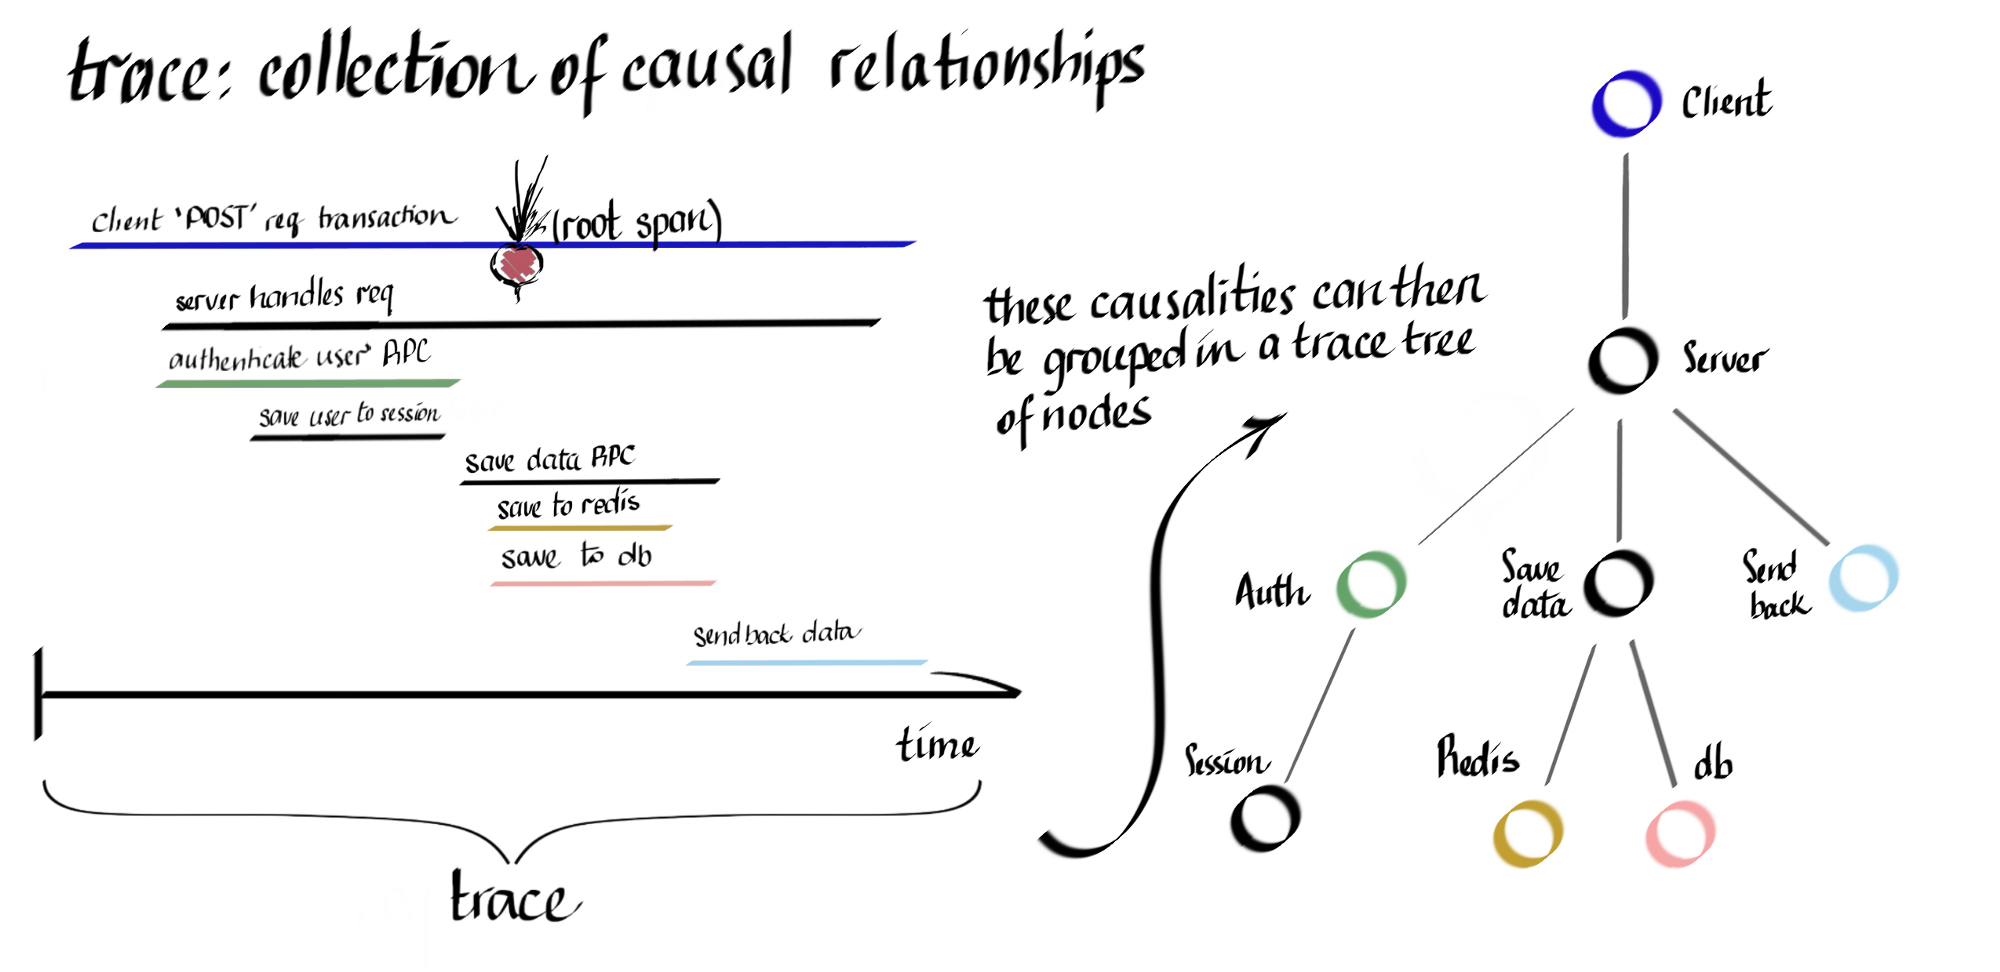 trace: collection of causal relationships
Client 'POST' req transaction
(root span)
server handles req
authenticate user RPC
save user to session
save data RPC
save to redis
save to db
send back data
time
trace
these causalities can then
be grouped in a trace tree
of nodes
Client
Server
Auth
Save
data
Send
back
Session
Redis
db